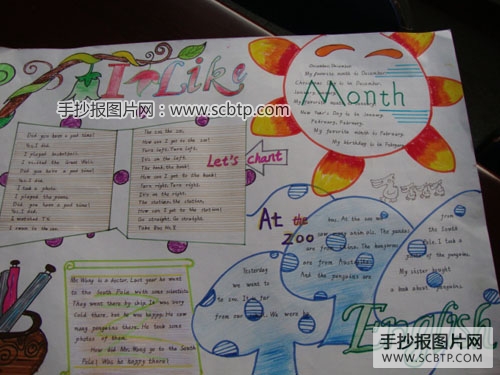 I Like
手抄报图片网：www.scbtp.com
Did you have a good time?
Yes, I did.
I played basketball.
Yes, I did.
I took a photo.
I played the piano.
Did you have a good time?
Yes, I did.
The car, the car,
How can I get to the car?
Turn left. Turn left.
It's on the left.
The bank, the bank!
How can I get to the bank?
Turn right. Turn right.
It's on the right.
The station, the station,
How can I get to the station?
Go straight. Go straight.
Take Bus No.2
Let's chant
Month
December, December.
My favorite month is December.
Christmas Day is in December.
New Year's Day is in January.
February, February.
My favorite month is February.
My birthday is in February.
At the Zoo
Yesterday
we went
to zoo. It is far
from our
We went by
bus. At the zoo we
saw many animals. The pandas
are from
are from Australia.
And the penguins are
from
the South
Pole. I took a
photo of the penguins.
My sister bought
a book about penguins.
Mr. Wang is a doctor. Last year he went
to the South Pole with some scientists.
They went there by ship. It was very
cold there, but he was happy. He saw
many penguins there. He took some
photos of them.
How did Mr. Wang go to the South
Pole? Was he happy there?
English
手抄报图片网
WWW.SCBTP.COM